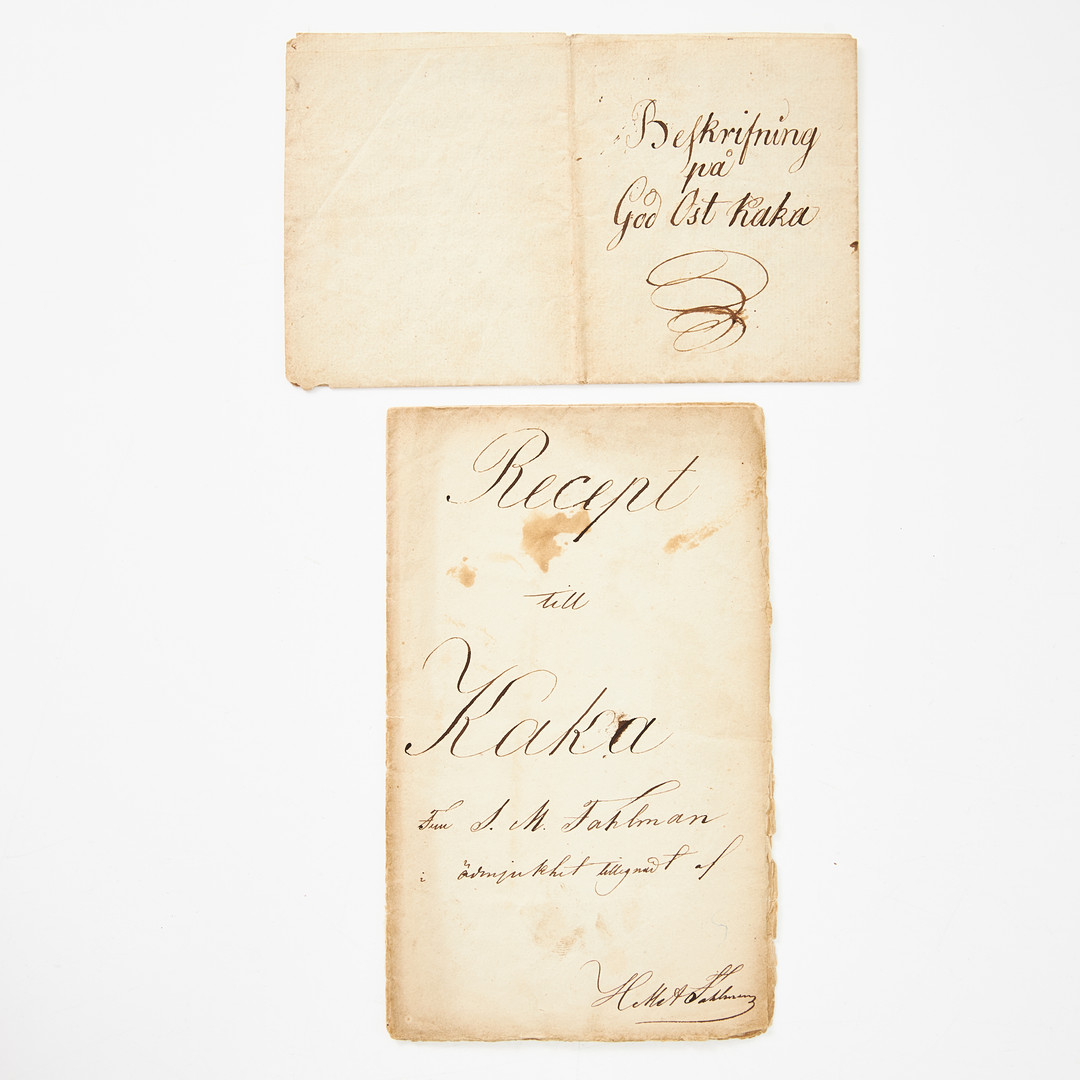 Beskrifning
på
God Ost Kaka
Recept
till
Kaka
Fru S. M. Fahlman
i ödmjukhet tillegnadt af
H M A Fahlman